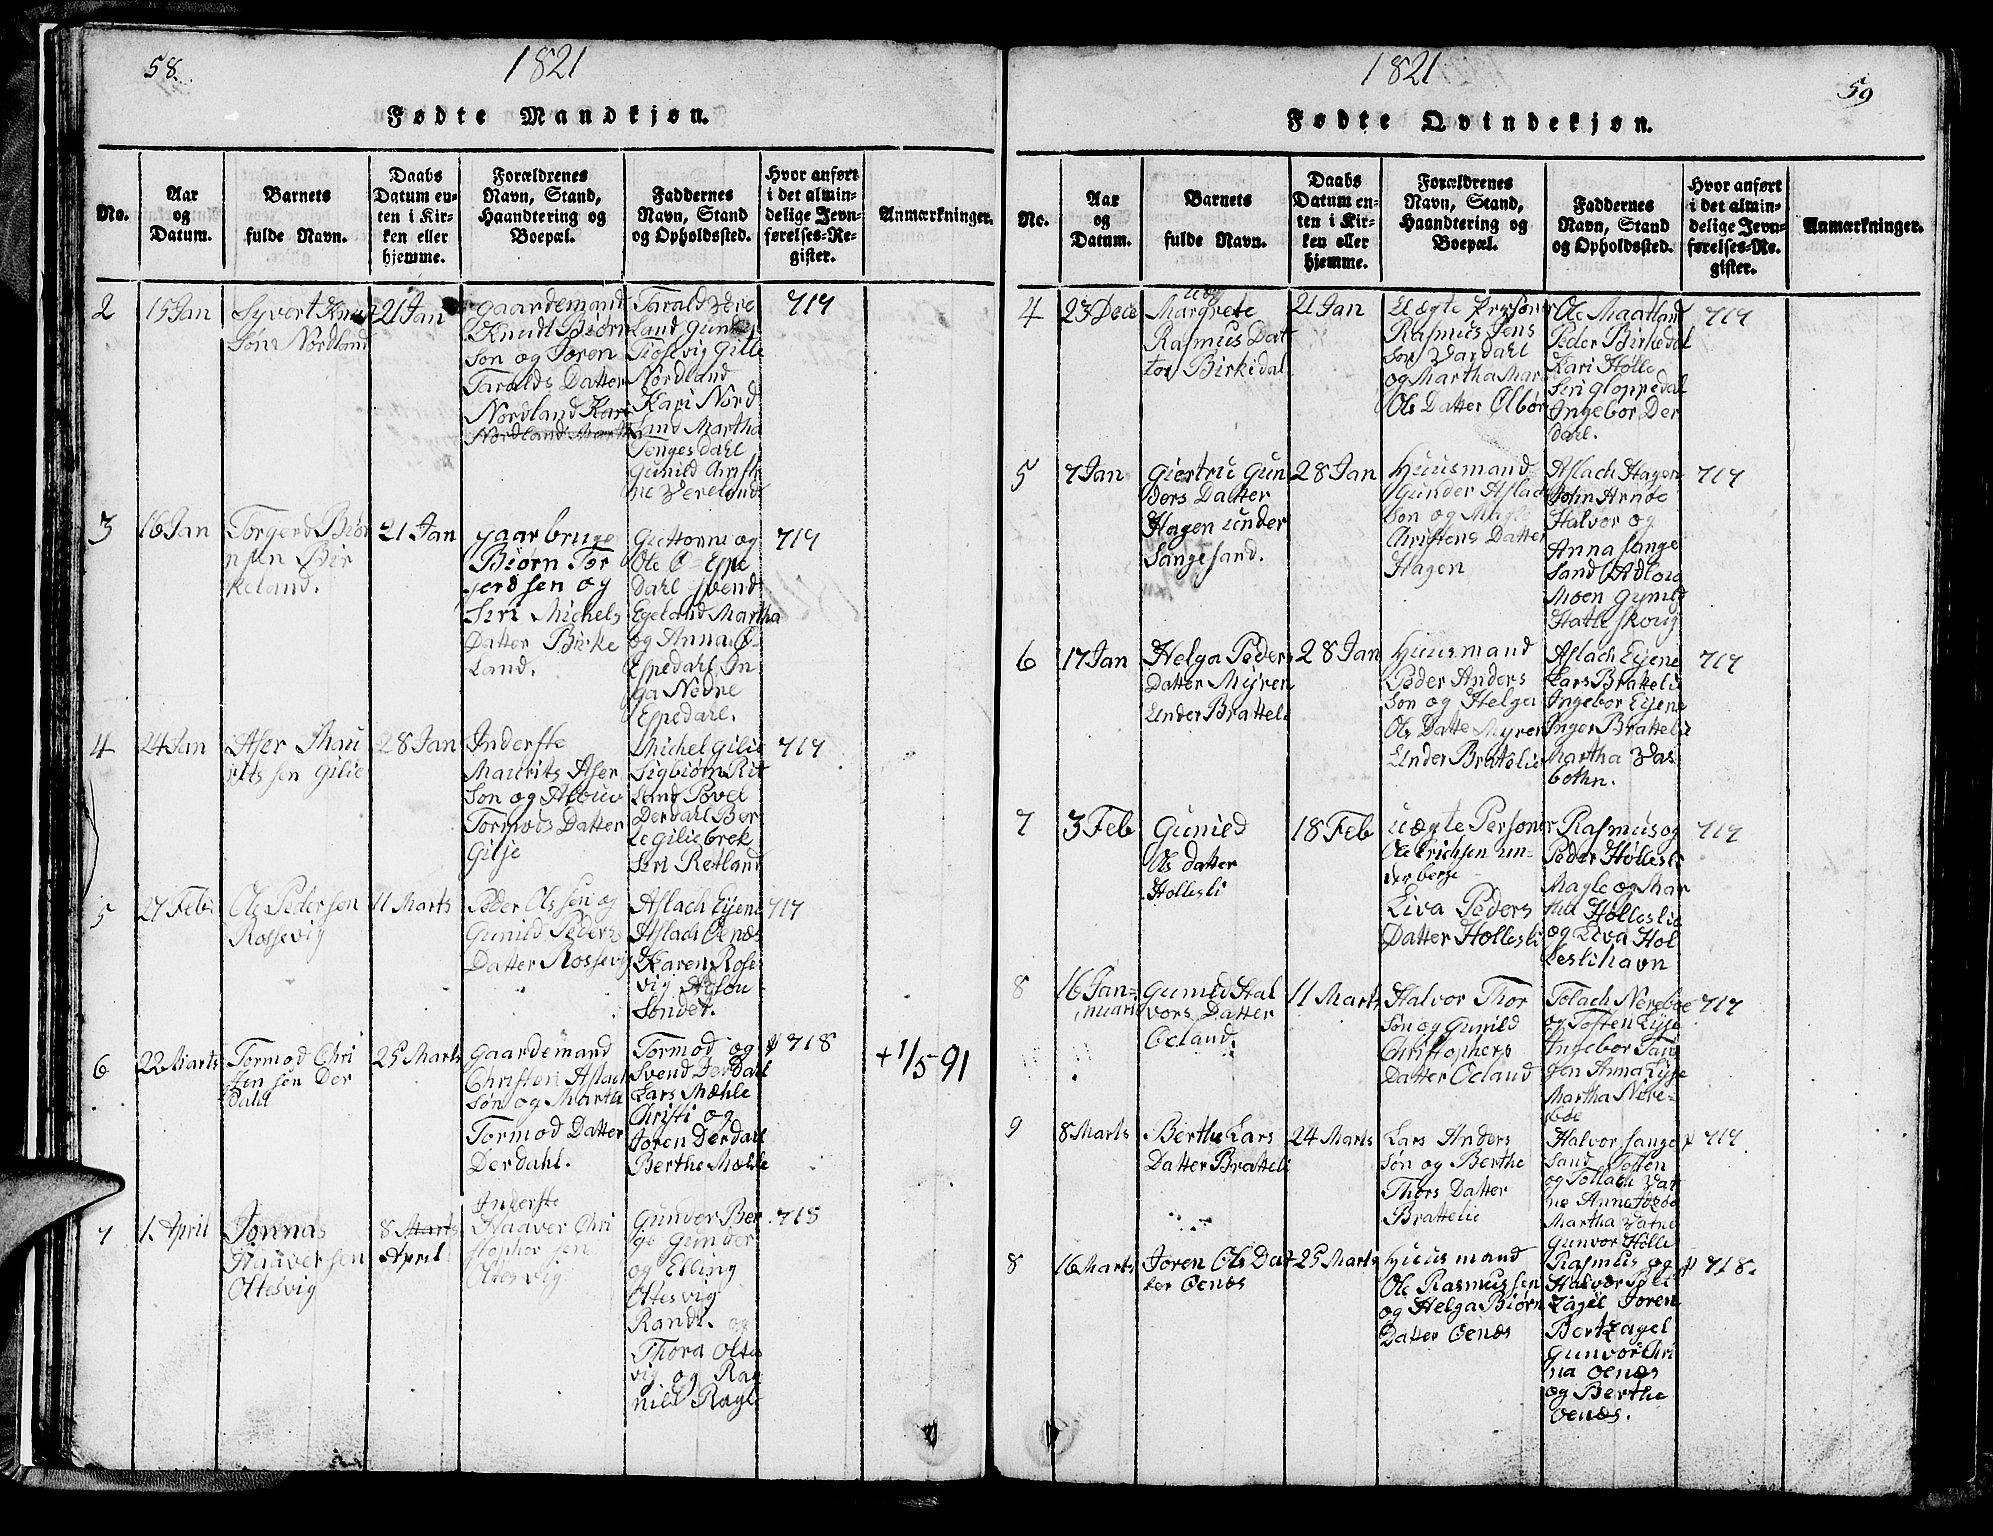 58.
1821
Fødte Mandkjøn.
No.
Aar
og
Datum.
Barnets
fulde Navn.
Daabs
Datum en-
ten i Kir-
ken eller
hjemme.
Forældrenes
Navn, Stand,
Haandtering og
Boepæl.
Faddernes
Navn, Stand
og Opholdssted.
Hvor anført
i det almin-
delige Jevn-
førelses-Re-
gister.
Anmærkninger.
2
15 Jan
Syvert
Søn Nordland
21 Jan
Gaardemand
Knudt Biørn
Søn og Joren
Taralds Datter
Nordland Kari
Nordland Martha
Tarald Vere
Land
Nordland
Kari Nord
Land Martha
Tenges Dahl
Gunild Christi
ne Vereland
717
3
16 Jan
Torgerd Biør
nsen Bir
keland.
21 Jan
gaarbruge
Biørn Tor
jerdsen og
Siri Michels
Datter Birke
Land.
og
Ole Espe
Dahl Svend
Egeland Martha
og Anna
Espedahl In
ga Nedre
Espedahl.
717
4
24 Jan
Aser Mau
rits sen Gilie
28 Jan
Inderste
Maurits Aser
Søn og
Tormois Datter
Gilje
Michel Gilie
Sigbiørn Ret
Land Povel
Derdahl Ber
te Gilie brek
Siri Retland
717
5
27 Feb:
Ole Pedersen
Rossevig
11 Marts
Peder Olssen og
Gunild Peders
Datter Rossevig
Aslach Eijene
Aslach Oenæs
Karen Rose
vig
Søndet.
717
6
22 Marts
Tormod Chri
sten sen Der
dahl
25 Marts
Gaardemand
Christen Aslach
Søn og Martha
Tormod Datter
Derdahl.
Tormod og
Svend Derdahl
Lars Mæhle
Christi og
Joren Derdahl
Berthe Mæhle
718
+ 1/5 91
7
1 April
Jonnas
Haaversen
Oltesvig
8 Marts
April
Inderste
Haaver Chri
stopher sen
Oltesvig
Gunder Ber
ge Gunder
og Elling
Oltesvig
Randi. og
Thora Oltes
vig og Rag
nild Rage
718
1821
59
Fødte Qvindekjøn.
No.
Aar
og
Datum.
Barnets
fulde Navn.
Daabs
Datum en-
ten i Kir-
ken eller
hjemme.
Forældrenes
Navn, Stand,
Haandtering og
Boepæl.
Faddernes
Navn, Stand
og Opholdssted.
Hvor anført
i det almin-
delige Jevn-
førelses-Re-
gister.
Anmærkninger.
4
23 Dece
Margrete
Rasmus Dat
ter Birkedal
21 Jan
Uægte Personer
Rasmus Jens
Søn Vardahl
og Martha Mar
Ols Datter Ølbør
Ole Maatland
Peder Birkedal
Kari Hølle
Siri Gloppedal
Ingebor Der
dahl.
717
5
7 Jan
Giertru Gun
ders Datter
Hagen under
Langesand.
28 Jan
Huusmand
Gunder Aslach
Søn og
Christens Datter
Hagen
Aslach Hagen
John Arnøe
Halvor og
Anna Lange
Sand
Moen Gunild
Hatleskoug
717
6
17 Jan
Helga Peders
Datter Myren
Under Bratteli
28 Jan
Huusmand
Peder Anders
Søn og Helga
Ols Datte Myren
Under Bratelie
Aslach Eijene
Lars Brattelie
Ingebor Eijene
Inger Brattelie
Martha Vas
bothn.
717
7
3 Feb
Gunild
Ols datter
Hollesli
18 Feb
uægte Personer
Ole Erichsen un-
der berge
Eiva Peders
Datter Hollesli
Rasmus og
Peder Hølleslie
Magle og Mar
tha Hølleslie
og Eiva Hol
Leslihavn
717
8
16 Jan-
nuarii
Gunild Hal
vors Datter
Ocland.
11 Marts
Halvor Thor
Søn og Gunild
Christophers
Datter Ocland
Tolach Nereboe
og Tosten Eije
Ingebor
Anna Eije
Martha Nere-
boe
717
9
8 Marts
Berthe Lars
Datter Bratteli
24 Marts
Lars Anders
Søn og Berthe
Thors Datter
Brattelie
Halvor Lange
Sand Tosten
og Tollach Vat
ne Anne
Martha Vatne
Gunvor Hølle
717
8
16 Marts
Joren Ols Dat
ter Oenæs
25 Marts
Huusmand
Ole Rasmussen
og Helga Biørn
Datter Oenæs
Rasmus og
Halvor
Joren
Gunvor Chri
na Oenæs
og Berthe
Oenæs.
718.